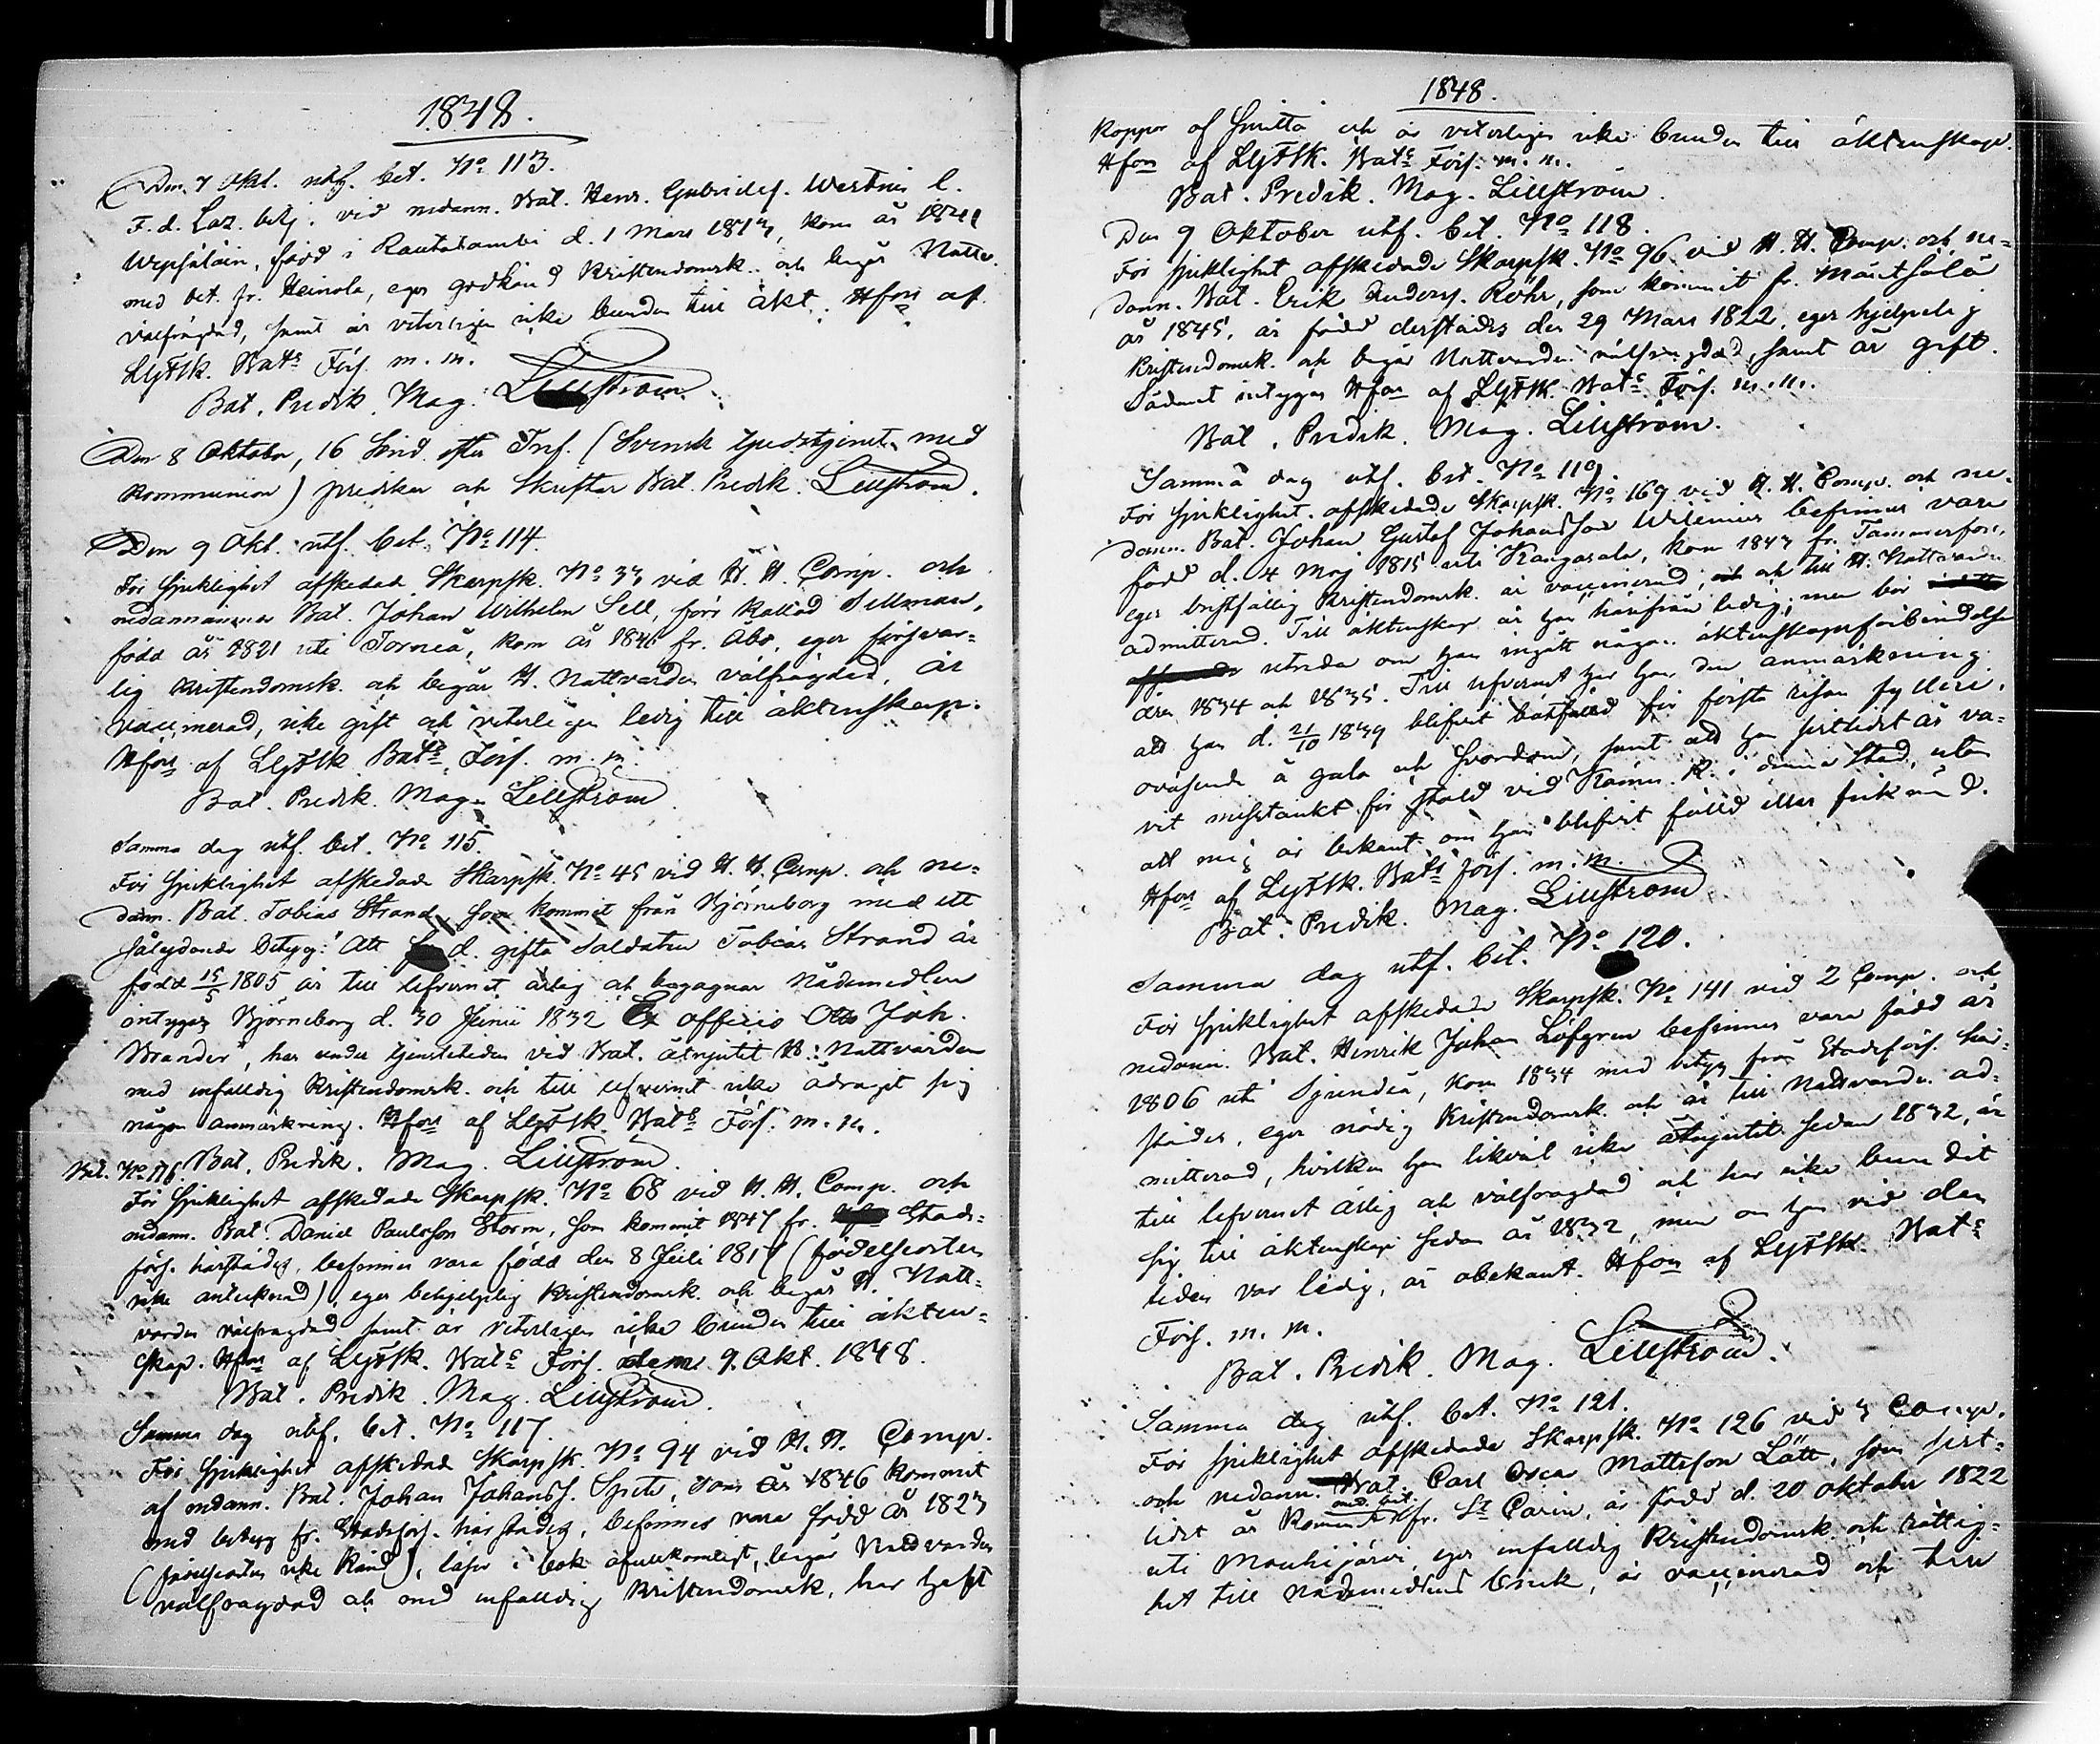 1848.
Den 7 Okt. utf. bet. No 113.
F. d. Laz. betj. vid nedann. Bat. Henr. Gabrielss. Westnii l.
Wepsäläin, född i Rautalambi d. 1 Mars 1813, kom år 1841
med bet. fr. Heinola, eger godkänd Kristendomsk. och begår Nattv.
välfrägdad, samt är veterligen icke bunden till äkt. Hfors af
LgFSk. Bats Förs. m. m.
Bat. Predik. Mag. Lillström
Den 8 Oktober, 16 Sönd. efter Tref. (Svensk Gudstjenst med
Kommunion) predikar och Skriftar Bat. Predik. Lillström.
Den 9 Okt. utf. bet. No 114.
För sjuklighet afskedad Skarpsk. No 37 vid H. H. Comp. och
nedannämnes Bat. Johan Wilhelm Sell, förr Kallad Sellman,
född år 1821 uti Torneå, kom år 1846 fr. Åbo, eger försvar=
lig Kristendomsk. och begår H. Nattvarden välfrägdad, är
vaccinerad, icke gift och veterligen ledig till äktenskap.
Hfors af LgFSk. Bats Förs. m. m.
Bat. Predik. Mag. Lillström
Samma dag utf. bet. No 115.
För sjuklighet afskedade Skarpsk. No 45 vid H. H. Comp. och ne=
dann. Bat. Tobias Strand, som kommit från Björneborg med ett
sålydande Betyg: "Att d. gifta Soldaten Tobias Strand är
född 15/5 1805 är till lefvernet ärlig och begagnar Nådemedlen
intygas Björneborg d. 30 Junii 1832 Ex officio Otto Joh.
Brander", har under tjenstetiden vid Bat. åtnjutit H. Nattvarden
med enfalldig Kristendomsk. och till lefvernet icke ådragit sig
någon anmärkning. Hfors af LgFSk. Bats Förs. m. m.
Bat. Predik. Mag. Lillström.
Bet. No 116.
För sjuklighet afskedade Skarpsk. No 68 vid H. H. Comp. och
nedann. Bat. Daniel Paulsson Storm, som kommit 1847 fr. Stads=
förs. härstädes, befinnes vara född den 8 Juli 1817 (födelseorten
icke antecknad), eger behjelplig Kristendomsk. och begår H. Natt=
varden välfragdad samt är veterligen icke bunden till äkten=
skap. Hfors af LgFSk. Bats Förs. den 9 Okt. 1848.
Bat. Predik. Mag. Lillström.
Samma dag utf. bet. No 117.
För sjuklighet afskedad Skarpsk. No 94 vid H. H. Comp.
af nedann. Bat. Johan Johanss. Spets, som år 1846 kommit
med betyg fr. Stadsförs. härstädes, befinnes vara född år 1823
(födelseorten icke känd), läser i bok ofullkomligt, begår Nattvarden
välfragdad och med enfalldig Kristendomsk. har haft
1848.
koppor af Smitta och är veterligen icke bunden till äktenskap.
Hfors af LgFSk. Bats Förs. m. m.
Bat. Predik. Mag. Lillström
Den 9 Oktober utf. bet. No 118.
För sjuklighet afskedade Skarpsk. No 96 vid H. H. Comp. och ne=
dann. Bat. Erik Anderss. Röhr, som kommit fr. Mäntsälä
år 1845, är född derstädes den 29 Mars 1822, eger hjelpelig
Kristendomsk. och begår Nattvarden välfragdad, samt är gift.
Sådant intygas Hfors af LgFSk. Bats Förs. m. m.
Bat. Predik. Mag. Lillström.
Samma dag utf. bet. No 119.
För sjuklighet afskedade Skarpsk. No 169 vid H. H. Comp. och ne=
dann. Bat. Johan Gustaf Johansson Wilenius befinnes vara
född d. 4 Maj 1815 uti Kangasala, kom 1843 fr. Tammerfors,
eger bristfällig Kristendomsk. är vaccinerad, och till H. Nattvarden
admitterad. Till äktenskap är han härifrån ledig; men bör
utreda om han ingått någon äktenskapsförbindelse
åren 1834 och 1835. Till lefvernet har han den anmärkning
att han d. 21/10 1839 blifvit bötfälld för första resan fylleri,
oväsende å gata och svordom, samt att han sistlidet år va=
rit misstänkt för stöld vid Kämn. R. i denna Stad, utan
att mig är bekant om han blifvit fälld eller frikänd.
Hfors af LgFSk. Bats Förs. m. m.
Bat. Predik. Mag. Lillström
Samma dag utf. bet. No 120.
För sjuklighet afskedade Skarpsk. No 141 vid 2 Comp. och
nedann. Bat. Henrik Johan Löfgren befinnes vara född år
1806 uti Sjundeå, kom 1834 med betyg från Stadsförs. här=
städes, eger nödig Kristendomsk. och är till Nattvarden ad=
mitterad, hvilken han likväl icke åtnjutit sedan 1832, är
till lefvernet ärlig och välfragdad och har icke bundit
sig till äktenskap sedan år 1832, men om han vid den
tiden var ledig, är obekant. Hfors af LgFSk. Bats
Förs. m. m.
Bat. Predik. Mag. Lillström.
Samma dag utf. bet. No 121.
För sjuklighet afskedade Skarpsk. No 126 vid 3 Comp.
och nedann. Bat. Carl Oscar Mattsson Lätt, som sist=
lidet år kommit med bet. fr. St Carin, är född d. 20 Oktober 1822
uti Mouhijärvi, eger enfalldig Kristendomsk. och rättig=
het till Nådemedlens bruk, är vaccinerad och till